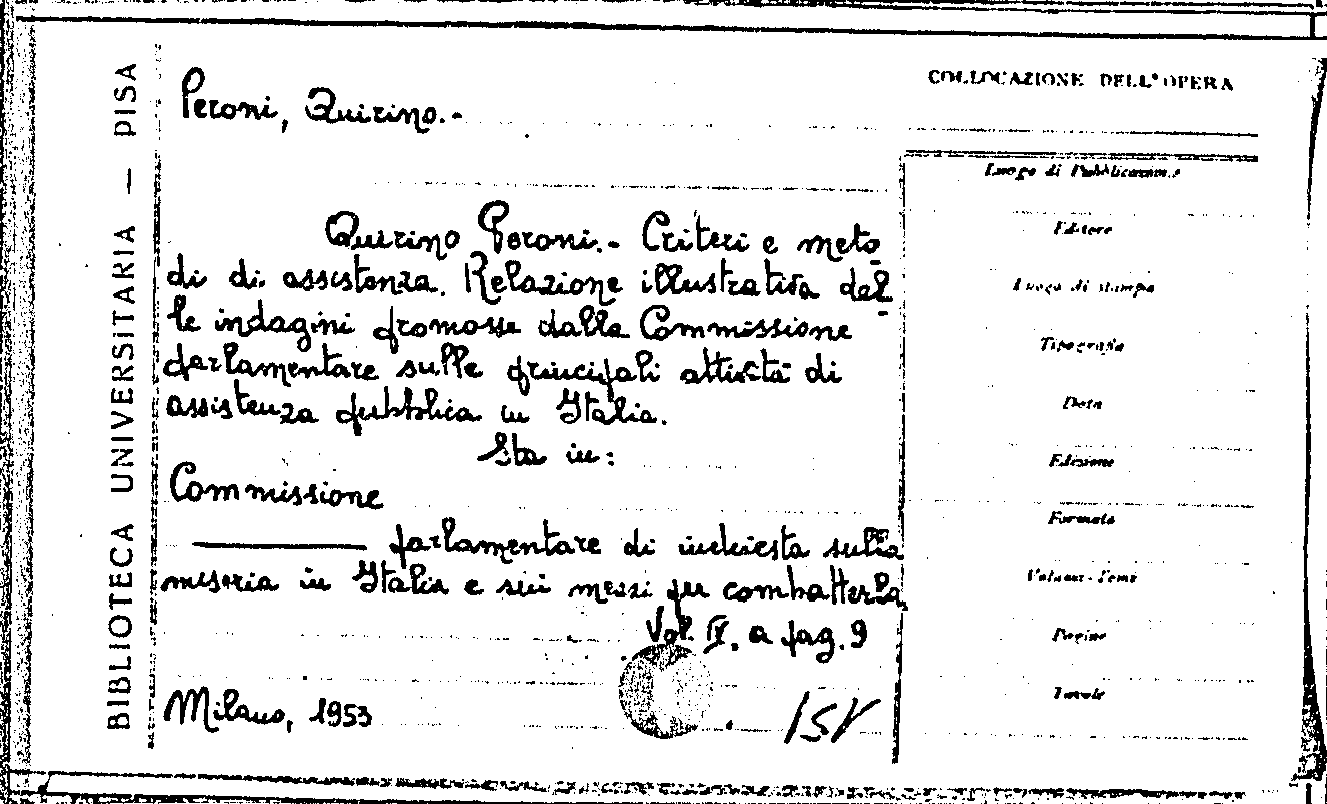 BIBLIOTECA UNIVERSITARIA — PISA
Peroni, Quirino.-
Quirino Peroni.- Criteri e meto
di di assistenza. Relazione illustrativa del-
le indagini promosse dalla Commissione
parlamentare sulle principali attività di
assistenza pubblica in Italia.
Sta in:
Commissione
——— parlamentare di inchiesta sulla
miseria in Italia e sui mezzi per combatterla.
Vol. IV. a pag. 9
Milano, 1953
COLLOCAZIONE DELL'OPERA
Luogo di Pubblicazione
Editore
Luogo di stampa
Tipografia
Data
Edizione
Formato
Volumi-Tomi
Pagine
Tavole